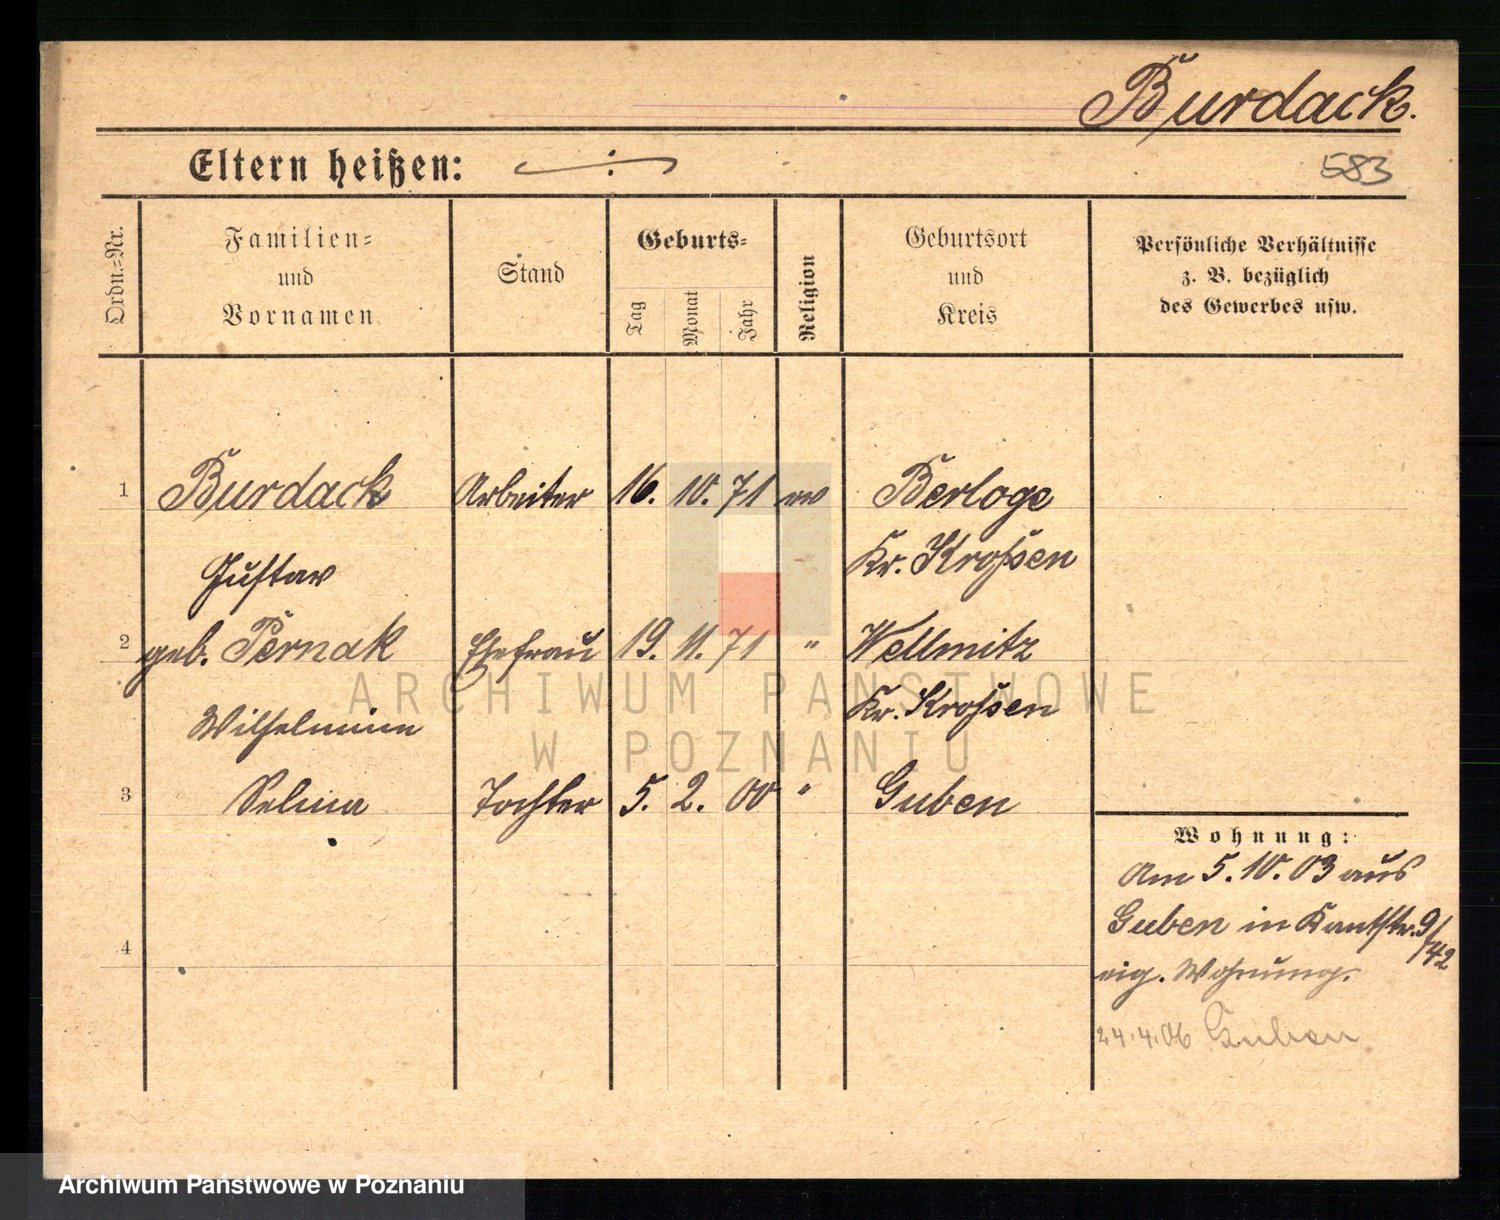 Burdack.
Eltern heißen: :
583
Ordn.=Nr.
Familien=
und
Vornamen
Stand
Geburts=
Tag
Monat
Jahr
Religion
Geburtsort
und
Kreis
Persönliche Verhältnisse
z. B. bezüglich
des Gewerbes usw.
1 Burdack Arbeiter 16. 10. 71 ev Berloge
Gustav Kr. Krossen
2 geb. Pernak Ehefrau 19. 11. 71 " Wellmitz
Wilhelmine Kr. Krossen
3 Selma Tochter 5. 2. 00 " Guben
4
Wohnung:
Am 5. 10. 03 aus
Guben in Kantstr. 9/42
eig. Wohnung.
24.4.06 Guben
ARCHIWUM PAŃSTWOWE
W POZNANIU
Archiwum Państwowe w Poznaniu